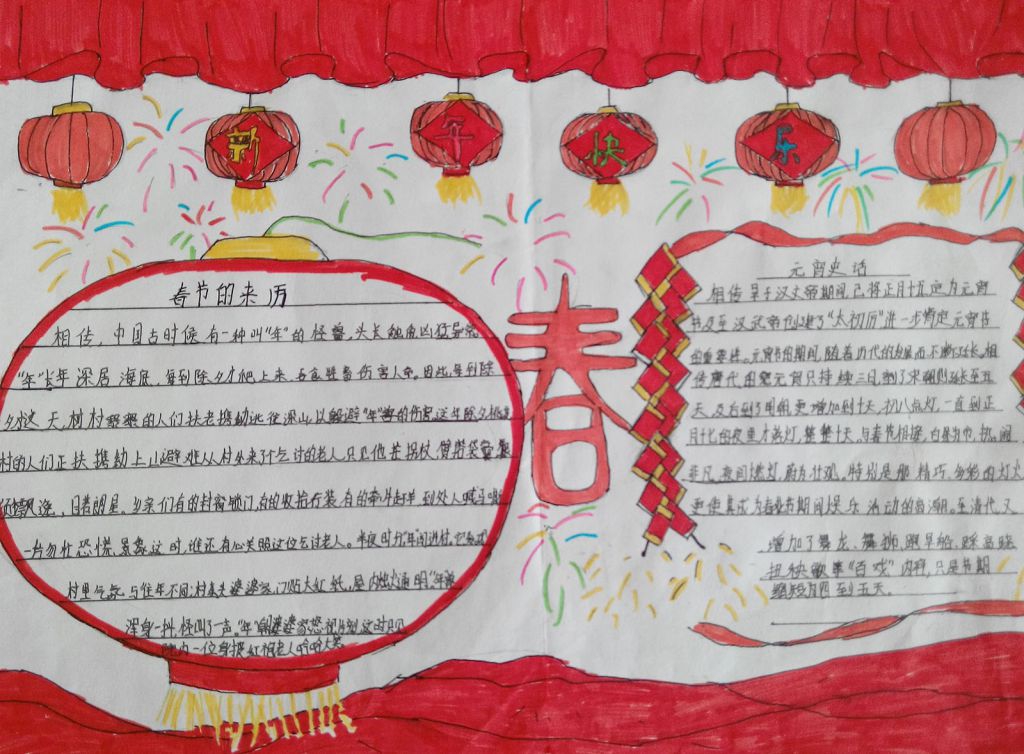 新年快乐
春节的来历
相传，中国古时候有一种叫"年"的怪兽，头长触角凶猛异常
"年"长年深居海底，每到除夕才爬上来，吞食牲畜伤害人命。因此，每到除
夕这天，村村寨寨的人们扶老携幼逃往深山，以躲避"年"兽的伤害这年除夕桃花
村的人们正扶携幼上山避难从村外来了个乞讨的老人只见他手拄拐杖，臂搭袋囊银
须飘逸，目若朗星，乡亲们有的封窗锁门，有的收拾行装，有的牵牛赶羊到处人喊马嘶
一片匆忙恐慌景象这时，谁还有心关照这位乞讨老人。半夜时分"年"闯进村。它发现
村里气氛与往年不同：村东头婆婆家，门贴大红纸，屋内烛火通明"年"兽
浑身一抖，怪叫了一声。"年"朝婆婆家怒视片刻这时只见
院内一位身披红袍老人哈哈大笑
春
元宵史话
相传早于汉文帝期间，已将正月十五定为元宵
节及至汉武帝创建了"太初历"进一步肯定元宵节
的重要性。元宵节的期间，随着历代的发展而不断延长。相
传唐代的观元宵只持续三日，到了宋朝则延长至五
天，及右到了明朝更增加到十天，初八点灯，一直到正
月十七的夜里才落灯，整整十天，与春节相接，白昼为市，热闹
非凡，夜间燃灯，蔚为壮观。特别是那精巧，多彩的灯火
更使其成为春节期间娱乐活动的高潮。至清代，又
增加了舞龙、舞狮、跑旱船、踩高跷
扭秧歌等"百戏"内容，只是节期
缩短为四到五天。